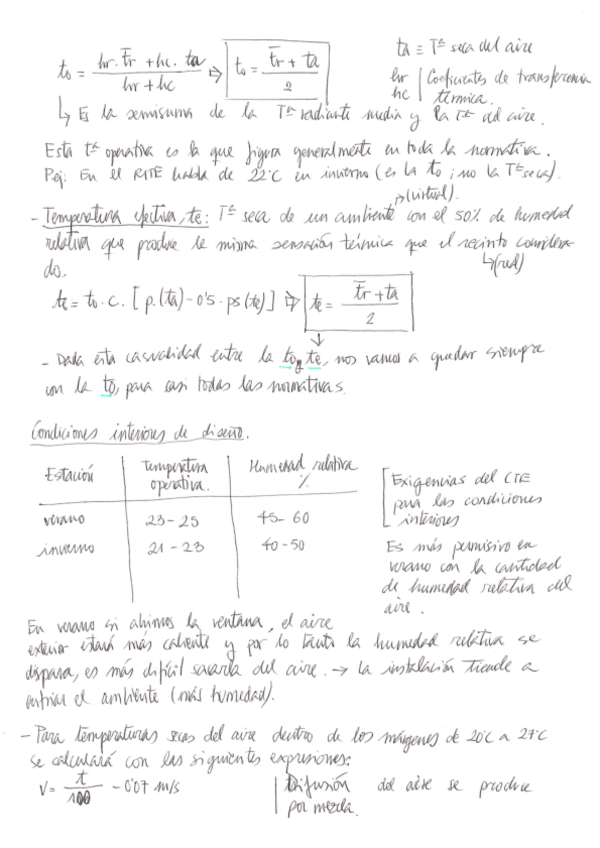 to = (hr. t̄r + hc. ta) / (hr + hc) ⇨ to = (t̄r + ta) / 2
ta ≡ Tª seca del aire
hr
hc | Coeficientes de transferencia
térmica.
↳ Es la semisuma de la Tª radiante media y la Tª del aire.
Esta tª operativa es la que figura generalmente en toda la normativa.
Pej: En el RITE habla de 22ºC en invierno (es la to ; no la Tª seca).
↳(virtual).
- Temperatura efectiva, te: Tª seca de un ambiente con el 50% de humedad
relativa que produce la misma sensación térmica que el recinto considera
do.
↳(real)
te = to . c . [ p.(ta) - 0'5 . ps (te) ] ⇨ te = (t̄r + ta) / 2
- Dada esta casualidad entre la to y te, nos vamos a quedar siempre
con la to, para casi todas las normativas.
Condiciones interiores de diseño.
Estación | Temperatura operativa. | Humedad relativa %
verano | 23 - 25 | 45 - 60
invierno | 21 - 23 | 40 - 50
Exigencias del CTE
para las condiciones
interiores
Es más permisivo en
verano con la cantidad
de humedad relativa del
aire.
En verano si abrimos la ventana, el aire
exterior estará más caliente y por lo tanto la humedad relativa se
dispara, es más difícil sacarla del aire. → La instalación tiende a
enfriar el ambiente (más humedad).
- Para temperaturas secas del aire dentro de los márgenes de 20ºC a 27ºC
se calculará con las siguientes expresiones:
V = t / 100 - 0'07 m/s
Difusión del aire se produce
por mezcla.